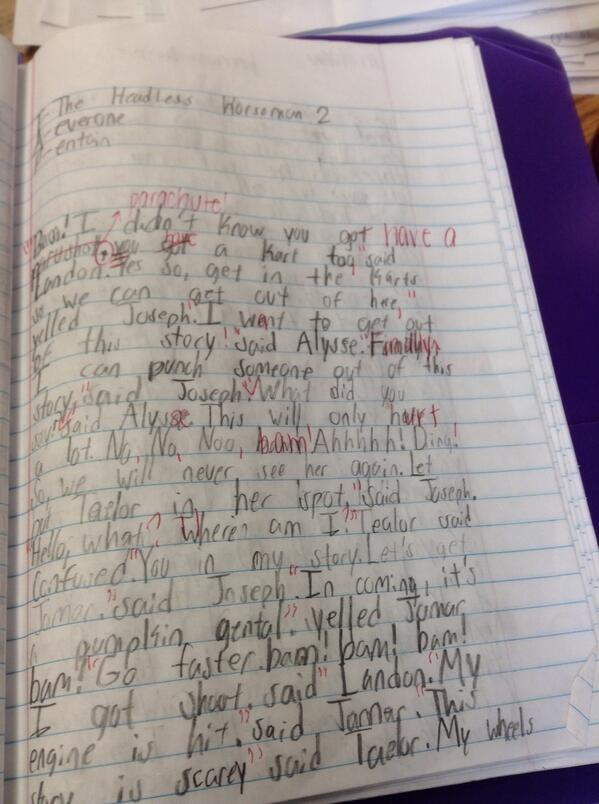 The Headless Horseman 2
everone
entain
parachute!
"Dang! I didn't know you got have a
you have got a Kart too" said
Landon. Yes so, get in the Karts
so we can get out of here,"
yelled Joseph. "I want to get out
of this story!" said Alysse. Finally,
I can punch someone out of this
story," said Joseph. "What did you
say?" said Alysse. This will only hurt
a lot. No, No, Noo, bam! Ahhhhh! Ding!
So, we will never see her again. Let
put Taelor in her spot," said Joseph.
"Hello, what? Where am I?" Tealor said
Confused. "You in my story. Let's get
Jamar." said Joseph. "In coming, it's
a pumpkin gental." yelled Jamar
bam! "Go faster. bam! bam! bam!
I got shoot." said Landon. "My
engine is hit." said Jamar. "This
story is scarey" said Taelor. My wheels